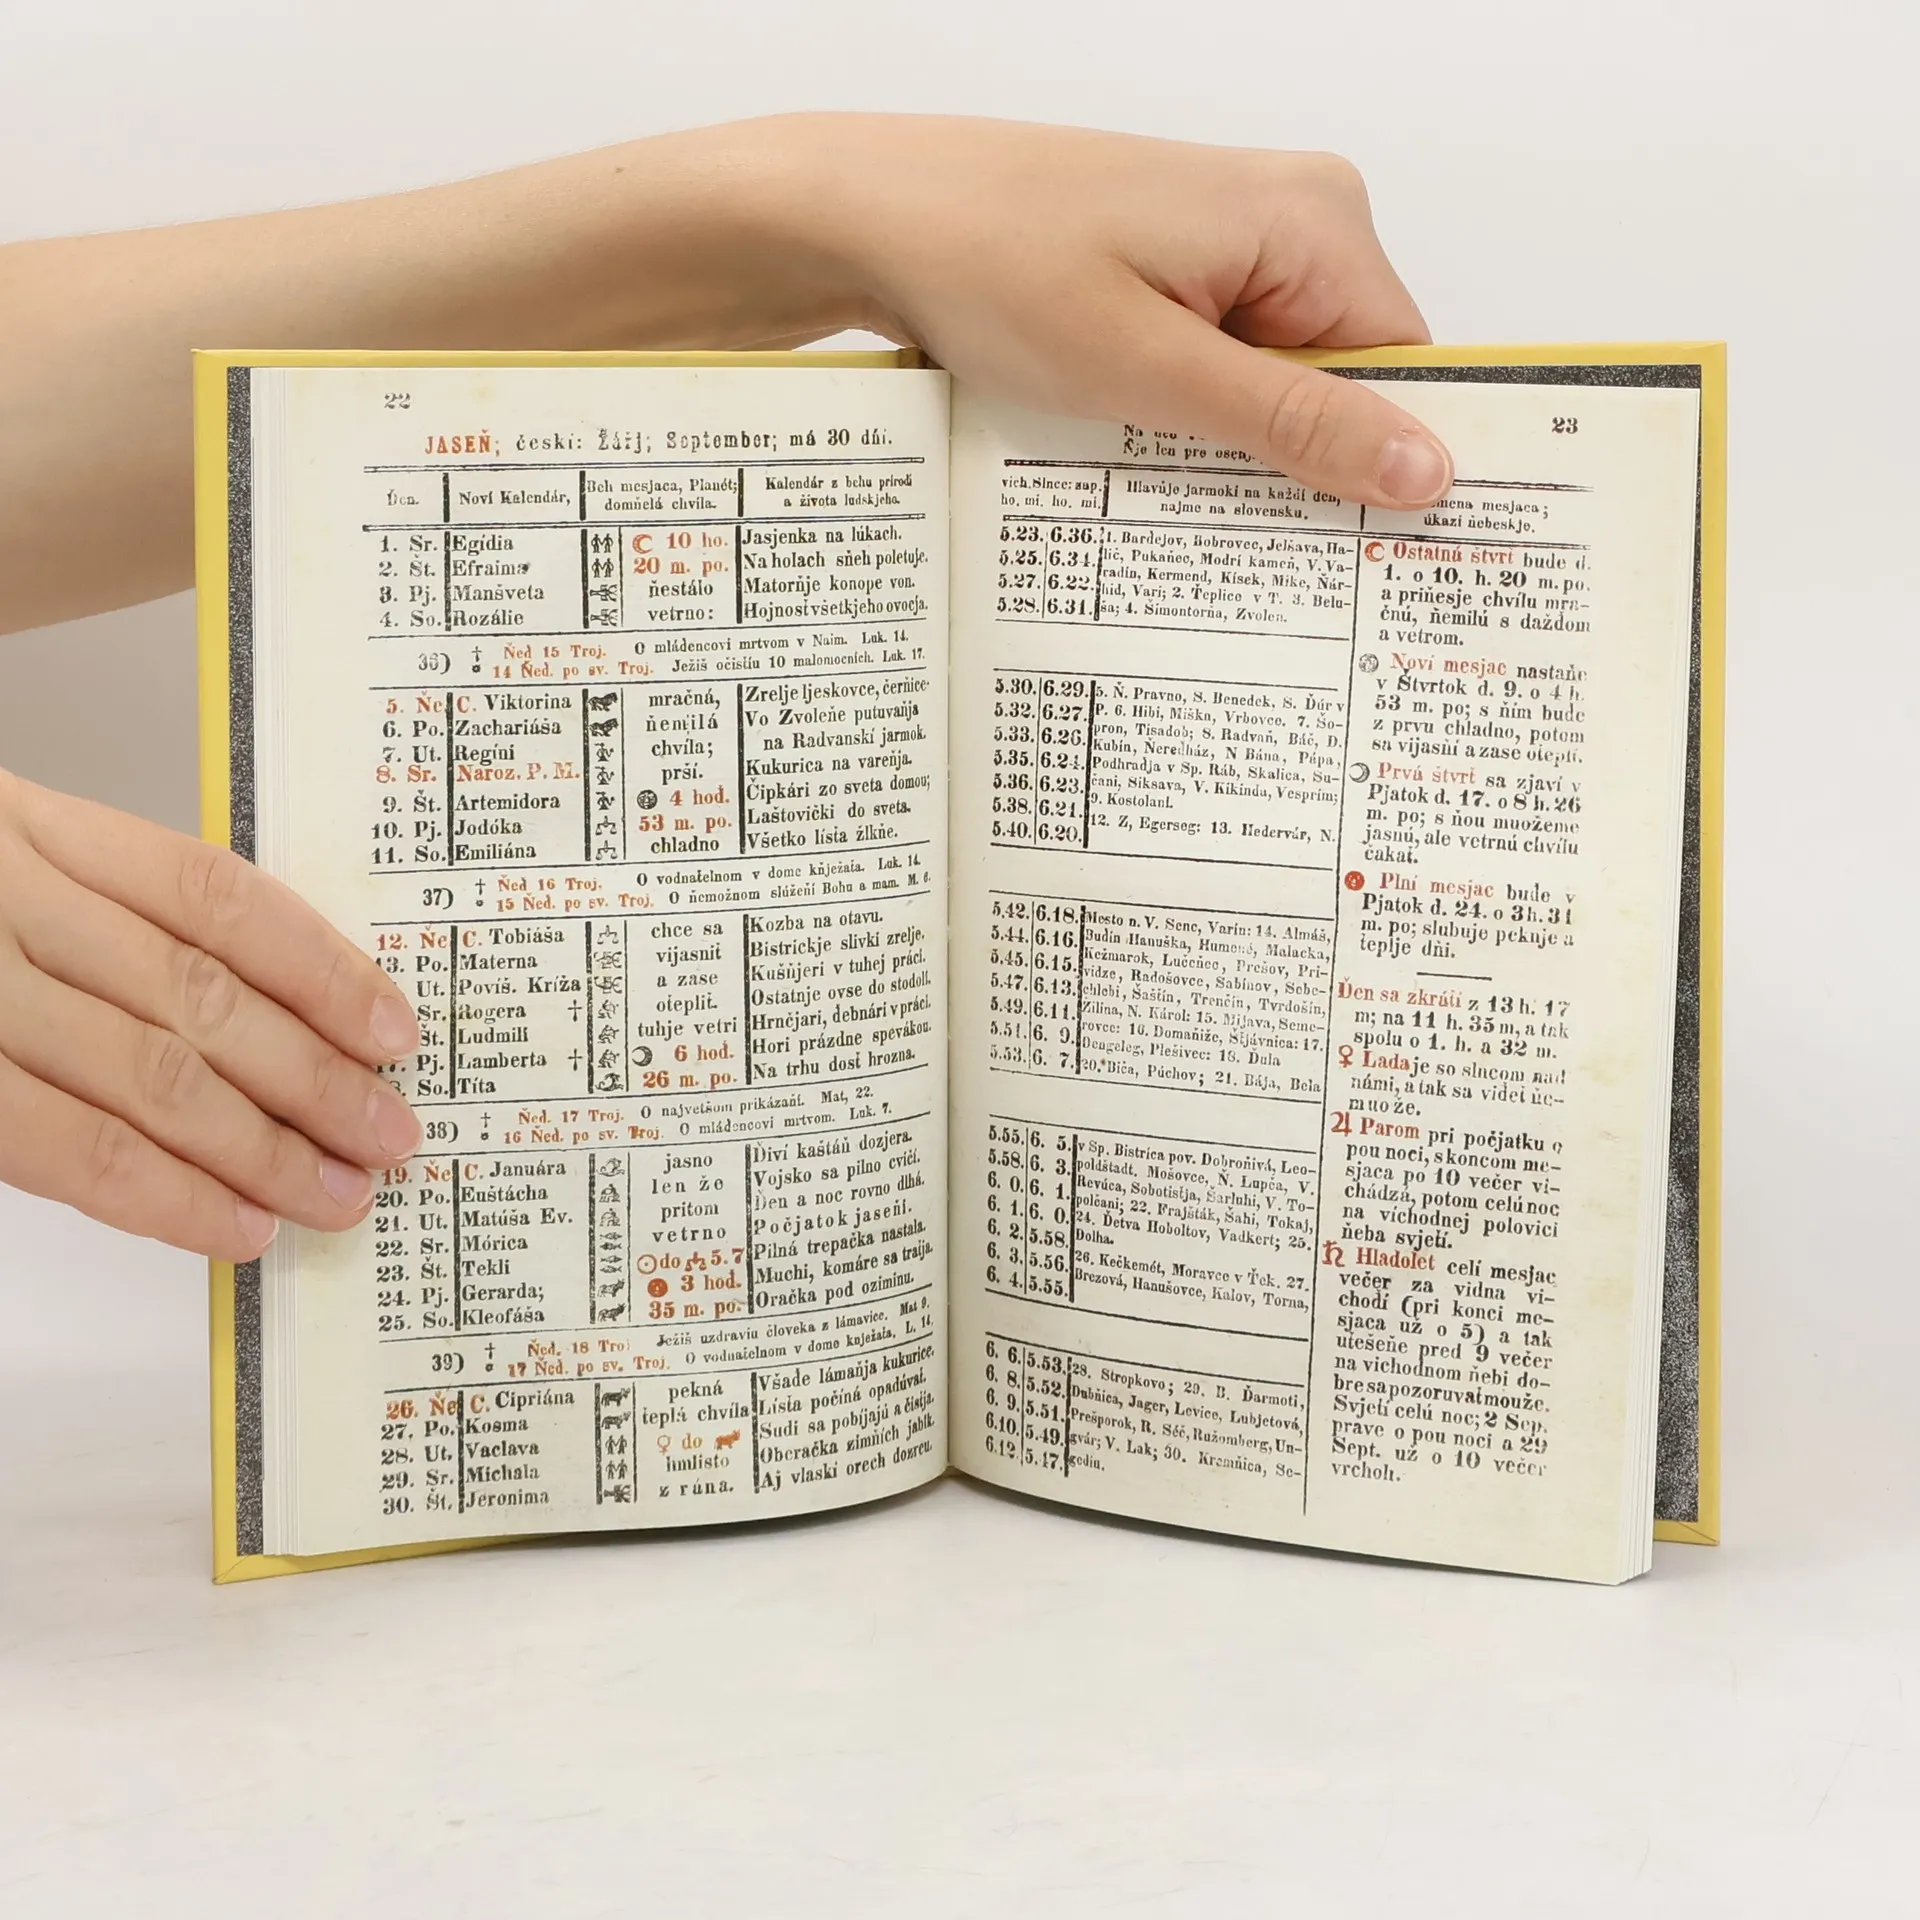 22
JASEŇ; česki: Žářj; September; má 30 dňí.
Ďen. Noví Kalendár, Beh mesjaca, Planét; domňelá chvíla. Kalendár z behu prírodi a života ludskjeho.
1. Sr. Egídia 10 ho. Jasjenka na lúkach.
2. Št. Efraima 20 m. po. Na holach sňeh poletuje.
3. Pj. Manšveta ňestálo Matorňje konope von.
4. So. Rozálie vetrno: Hojnosť všetkjeho ovocja.
36) † Ňeď 15 Troj. O mládencovi mrtvom v Naim. Luk. 14.
14 Ňeď. po sv. Troj. Ježiš očistíu 10 malomocních. Luk. 17.
5. Ňe C. Viktorina mračná, Zrelje ljeskovce, černice
6. Po. Zachariáša ňemilá Vo Zvoleňe putuvaňja
7. Ut. Regíni chvíla; na Radvanskí jarmok.
8. Sr. Naroz. P. M. prší. Kukurica na vareňja.
9. Št. Artemidora 4 hoď. Čipkári zo sveta domou;
10. Pj. Jodóka 53 m. po. Laštovički do sveta.
11. So. Emiliána chladno Všetko lísťa žlkňe.
37) † Ňeď 16 Troj. O vodnatelnom v dome kňježaťa. Luk. 14.
15 Ňeď. po sv. Troj. O ňemožnom slúžení Bohu a mam. M. 6.
12. Ňe C. Tobiáša chce sa Kozba na otavu.
13. Po. Materna vijasniť Bistrickje slivki zrelje.
Ut. Povíš. Kríža a zase Kušňjeri v tuhej práci.
Sr. Rogera † otepliť. Ostatňje ovse do stodolí.
Št. Ludmilí tuhje vetri Hrnčjari, debnári v práci.
17. Pj. Lamberta † 6 hoď. Hori prázdne spevákou.
So. Títa 26 m. po. Na trhu dosť hrozna.
38) † Ňeď. 17 Troj. O najvetšom prikázaňí. Mat, 22.
16 Ňeď. po sv. Troj. O mládencovi mrtvom. Luk. 7.
19. Ňe C. Januára jasno Ďiví kaštáň dozjera.
20. Po. Euštácha len že Vojsko sa pilno cvičí.
21. Ut. Matúša Ev. pritom Ďen a noc rovno dlhá.
22. Sr. Mórica vetrno Počjatok jaseňi.
23. Št. Tekli ☉ do ♎ 5. 7 Pilná trepačka nastala.
24. Pj. Gerarda; 3 hoď. Muchi, komáre sa traťja.
25. So. Kleofáša 35 m. po. Oračka pod oziminu.
39) † Ňeď. 18 Tro Ježiš uzdraviu človeka z lámavice. Mat 9.
17 Ňeď. po sv. Troj. O vodnatelnom v dome kňježaťa, L. 14.
26. Ňe C. Cipriána pekná Všade lámaňja kukurice.
27. Po. Kosma teplá chvíla Lísťa počíná opadúvať.
28. Ut. Vaclava ♀ do Sudi sa pobíjajú a čisťja.
29. Sr. Michala hmlisto Oberačka zimních jablk.
30. Št. Jeronima z rána. Aj vlaski orech dozreu.
23
Ňje len pre
vich. Slnce: zap. Hlavňje jarmoki na každí ďen, mena mesjaca;
ho. mi. ho. mi. najme na slovensku. úkazi ňebeskje.
5.23. 6.36. 1. Bardejov, Bobrovec, Jelšava, Ha-
5.25. 6.34. lič, Pukaňec, Modrí kameň, V. Va-
radín, Kermend, Kísek, Mike, Ňár-
5.27. 6.22. hid, Vari; 2. Ťeplice v T. 3. Belu-
5.28. 6.31. ša; 4. Šimontorňa, Zvolen.
5.30. 6.29. 5. Ň. Pravno, S. Benedek, S. Ďúr v
5.32. 6.27. P. 6. Hibi, Miška, Vrbovce. 7. Šo-
5.33. 6.26. pron, Tisadob; S. Radvaň, Báč, D.
Kubín, Ňeredház, N Bána, Pápa,
5.35. 6.24. Podhradja v Sp. Ráb, Skalica, Su-
5.36. 6.23. čani, Siksava, V. Kikinda, Vesprím;
5.38. 6.21. 9. Kostolani.
5.40. 6.20. 12. Z, Egerseg: 13. Hedervár, N.
5.42. 6.18. Mesto n. V. Senc, Varín: 14. Almáš,
5.44. 6.16. Budín Hanuška, Humené, Malacka,
5.45. 6.15. Kežmarok, Lučeňec, Prešov, Pri-
vidze, Radošovce, Sabinov, Sebe-
5.47. 6.13. chlebi, Šaštín, Trenčín, Tvrdošín,
5.49. 6.11. Žilina, N. Károl: 15. Mijava, Seme-
5.51. 6. 9. rovce: 16. Domaňiže, Šťjávnica: 17.
Dengeleg, Plešivec: 18. Ďula
5.53. 6. 7. 20. Biča, Púchov; 21. Bája, Bela
5.55. 6. 5. v Sp. Bistrica pov. Dobroňivá, Leo-
5.58. 6. 3. poldštadt. Mošovce, Ň. Lupča, V.
6. 0. 6. 1. Revúca, Sobotisťja, Šarluhi, V. To-
6. 1. 6. 0. polčani; 22. Frajšták, Šahi, Tokaj,
6. 2. 5.58. 24. Ďetva Hoboltov, Vadkert; 25.
Dolha.
6. 3. 5.56. 26. Kečkemét, Moravce v Ťek. 27.
6. 4. 5.55. Brezová, Hanušovce, Kalov, Torna,
6. 6. 5.53. 28. Stropkovo; 29. B. Ďarmoti,
6. 8. 5.52. Dubňica, Jager, Levice, Lubjetová,
6. 9. 5.51. Prešporok, R. Séč, Ružomberg, Un-
6.10. 5.49. gvár; V. Lak; 30. Kremňica, Se-
6.12. 5.47. gedín.
Ostatná štvrť bude d.
1. o 10. h. 20 m. po.
a priňesje chvílu mra-
čnú, ňemilú s dažďom
a vetrom.
Noví mesjac nastaňe
v Štvrtok d. 9. o 4 h.
53 m. po; s ňím bude
z prvu chladno, potom
sa vijasňí a zase oteplí.
Prvá štvrť sa zjaví v
Pjatok d. 17. o 8 h. 26
m. po; s ňou muožeme
jasnú, ale vetrnú chvílu
čakať.
Plní mesjac bude v
Pjatok d. 24. o 3 h. 31
m. po; slubuje peknje a
teplje dňi.
Ďen sa zkráti z 13 h. 17
m; na 11 h. 35 m, a tak
spolu o 1. h. a 32 m.
♀ Lada je so slncom nad
námi, a tak sa viďeť ňe-
muože.
♃ Parom pri počjatku o
pou noci, skoncom me-
sjaca po 10 večer vi-
chádza, potom celú noc
na víchodnej polovici
ňeba svjeti.
♄ Hladolet celí mesjac
večer za vidna vi-
chodí (pri konci me-
sjaca už o 5) a tak
utešeňe pred 9 večer
na víchodnom ňebi do-
bre sa pozoruvať muože.
Svjeti celú noc; 2 Sep.
práve o pou noci a 29
Sept. už o 10 večer
vrcholí.